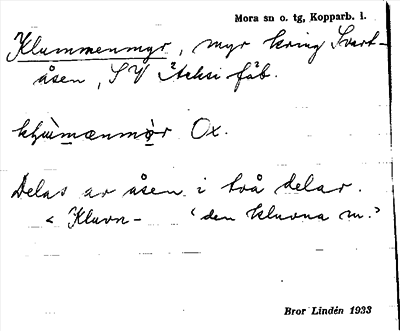 Mora sn o. tg, Kopparb. l.
Klummenmyr, myr kring Svart-
åsen, SV fäb.
Ox.
Delas av åsen i två delar.
< Kluvn- 'den kluvna m.'
Bror Lindén 1933